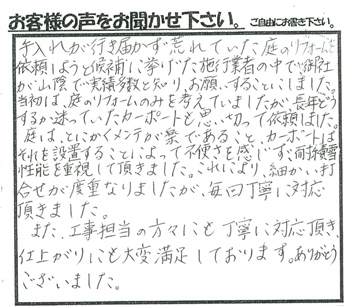 お客様の声をお聞かせ下さい。 ご自由にお書き下さい。
手入れが行き届かず荒れていた庭のリフォームを
依頼しようと候補に挙げた施行業者の中で、御社
が山陰で実績多数と知り、お願いすることにしました。
当初は、庭のリフォームのみを考えていましたが、長年どう
するか迷っていたカーポートも思い切って依頼しました。
庭は、とにかくメンテが楽であること、カーポートは
それを設置することによって不便さを感じず、耐積雪
性能を重視して頂きました。これにより、細かい打
合せが度重なりましたが、毎回丁寧に対応
頂きました。
また、工事担当の方々にも丁寧に対応頂き、
仕上がりにも大変満足しております。ありがとう
ございました。